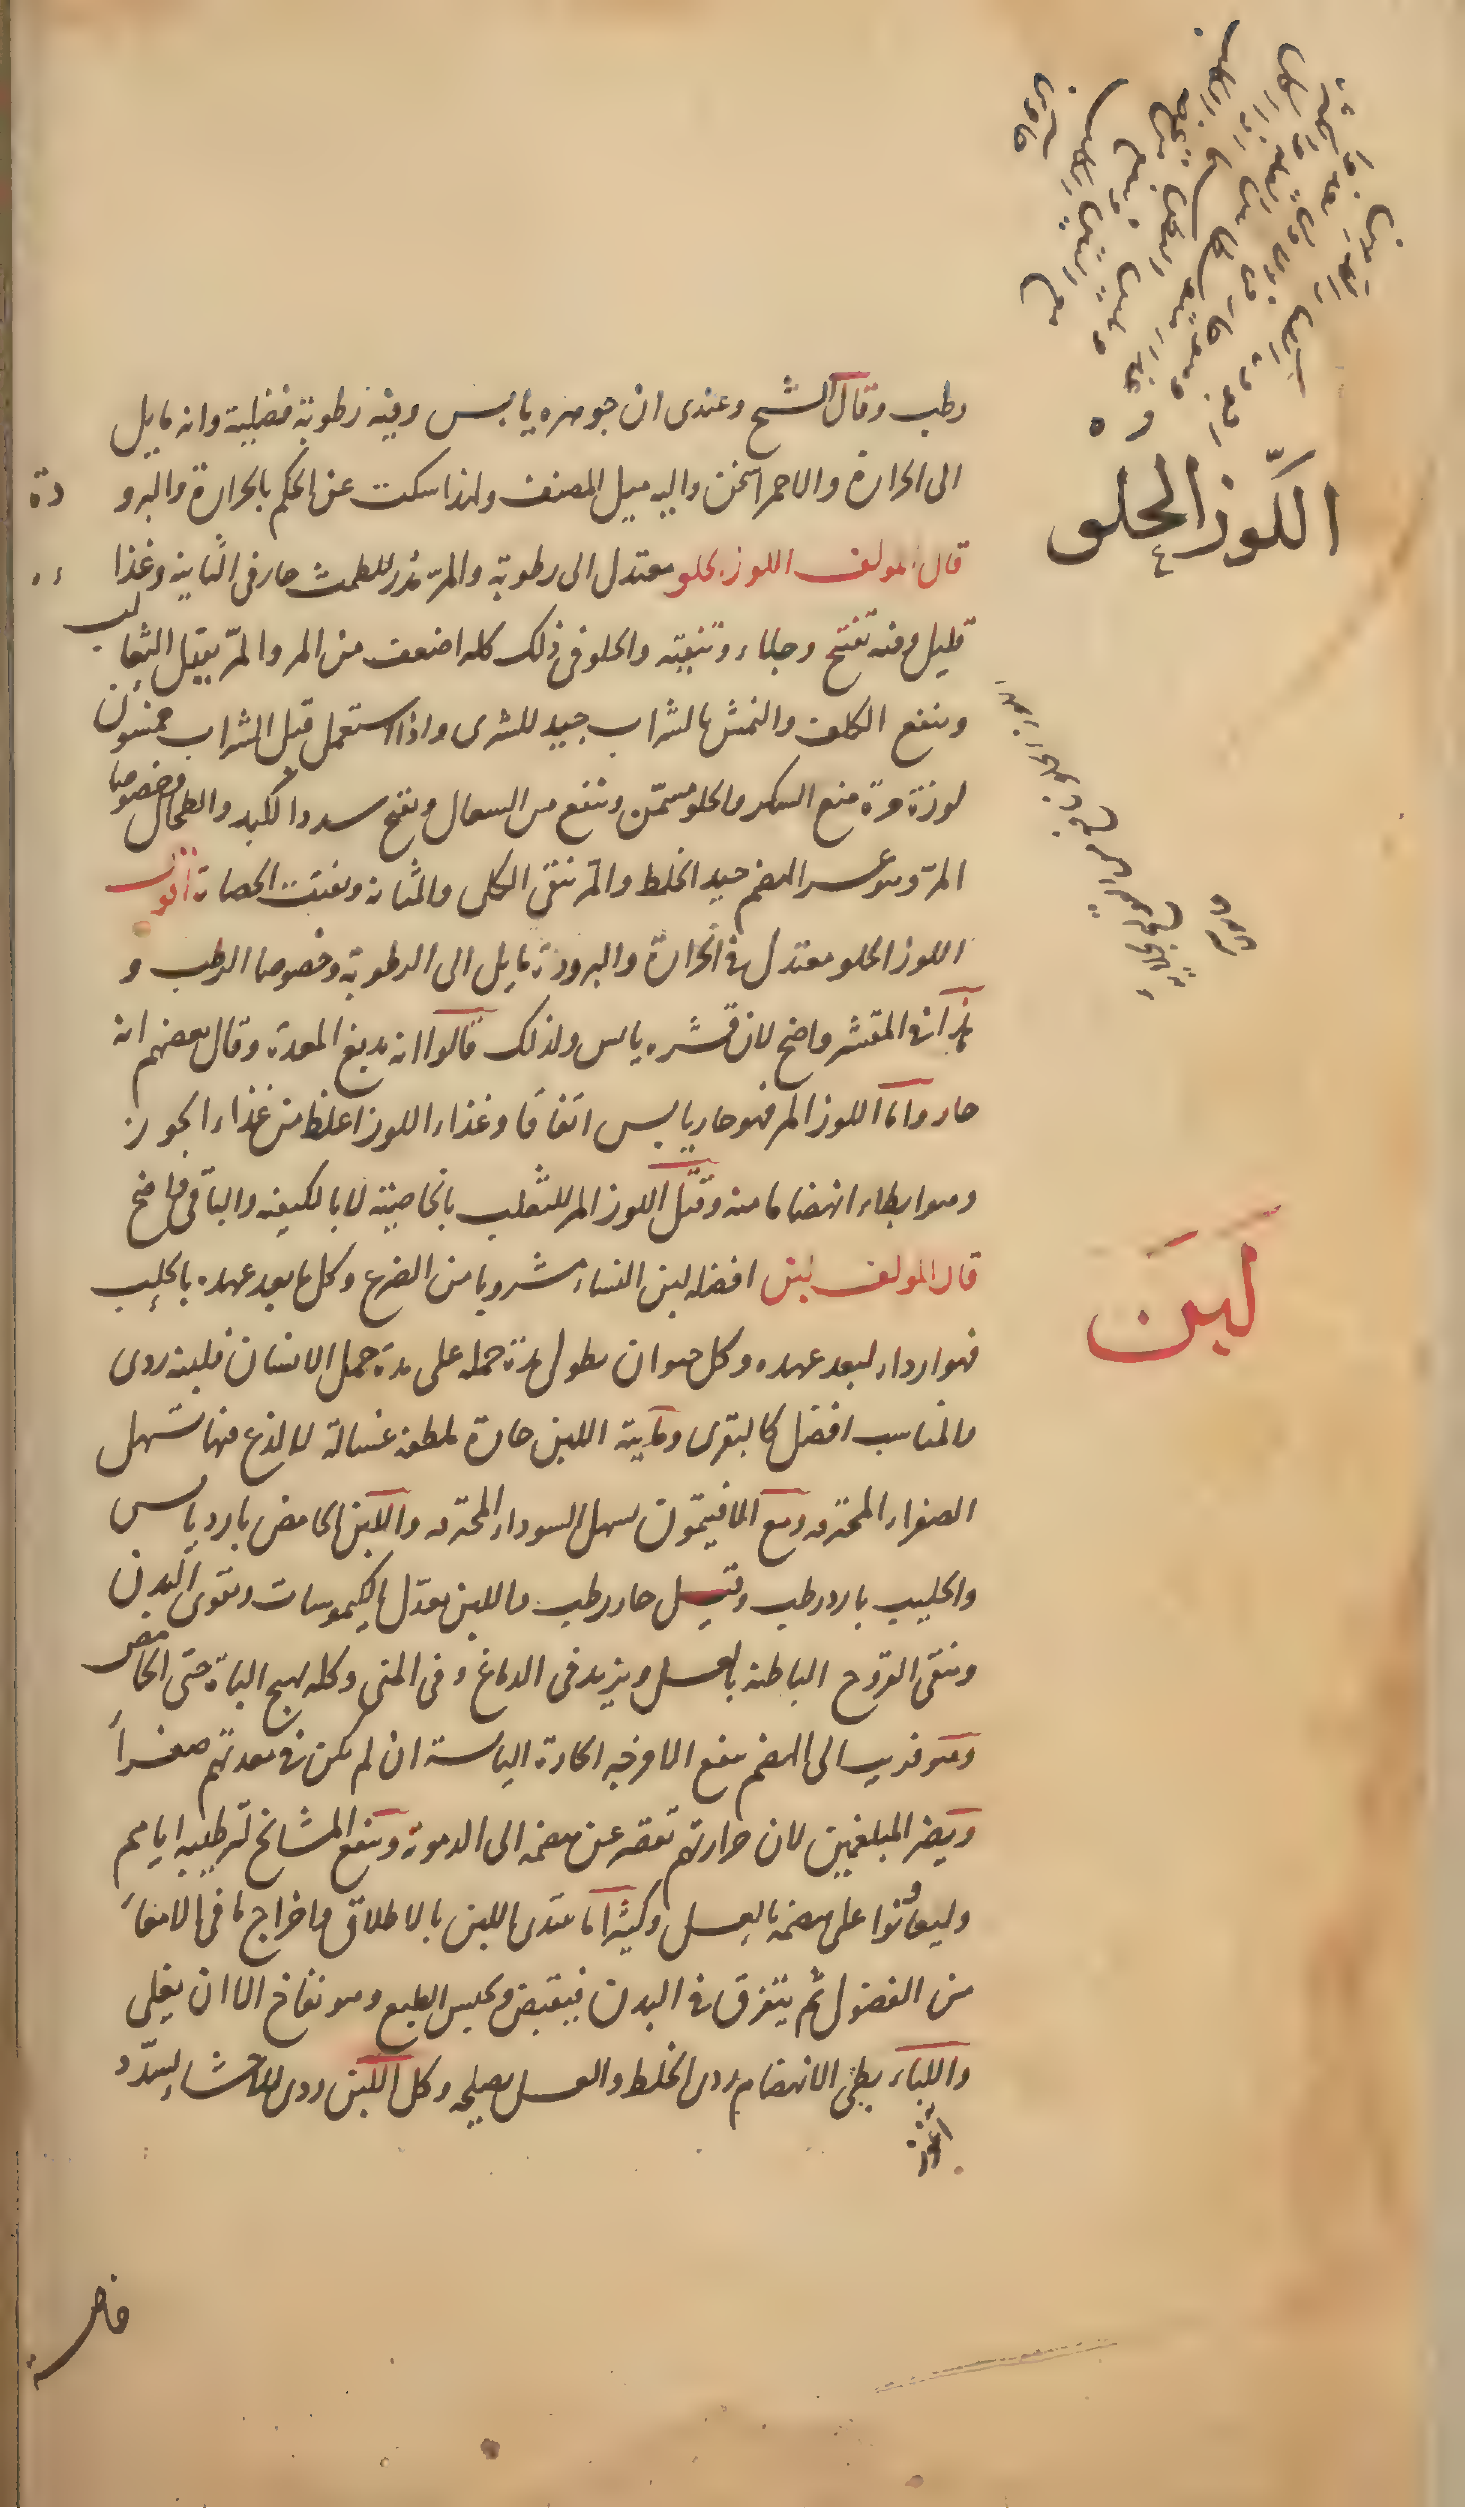 رطب وقال الشيخ وعندى ان جوهره يابس وفيه رطوبة فضلية وانه مايل
الى الحرارة والاحمر اسخن واليه ميل المصنف ولهذا سكت عن الحكم بالحرارة والبرو دة
اللوز الحلو
قال المولف اللوز الحلو معتدل الى رطوبة والمر مدر للطمث حار فى الثانية وغذاء
قليل وفيه تفتيح وجلاء وتنقية والحلو فى ذلك كله اضعف من المر والمرّ يقتل الثعالب
وينفع الكلف والنمش بالشراب جيد للشرى واذا استعمل قبل الشراب خمسون
لوزة مرة منع السكر والحلو مسمّن وينفع من السعال ويفتح سدد الكبد والطحال خصوصا
المرّ وهو عسر الهضم جيد الخلط والمر ينقى الكلى والمثانة ويفتت الحصاة اقول
اللوز الحلو معتدل فى الحرارة والبرودة مايل الى الرطوبة وخصوصا الرطب و
هذا فى المقشر واضح لان قشره يابس ولذلك قالوا انه يدبغ المعدة وقال بعضهم انه
حار واما اللوز المر فهو حار يابس اتفاقا وغذاء اللوز اغلظ من غذاء الجوز
وهو ابطاء انهضاما منه وقتل اللوز المر للثعلب بالخاصية لا بالكيفية والباقى واضح
لبن
قال المولف لبن افضله لبن النساء مشروبا من الضرع وكل ما بعد عهده بالحلب
فهو اردا، لبعد عهده وكل حيوان يطول مدة حمله على مدة حمل الانسان فلبنه ردى
والمناسب افضل كالبقرى ومايية اللبن حارة ملطفة غسالة لا لذع فيها تسهل
الصفراء المحترقة ومع الافيتمون يسهل السوداء المحترقة واللبن الحامض بارد يابس
والحليب بارد رطب وقيل حار رطب واللبن يعدّل الكيموسات ويقوى البدن
وينقى القروح الباطنة بالعسل ويزيد فى الدماغ وفى المنى وكله يهيج الباة حتى الحامض
وهو قريب الى الهضم ينفع الامزجة الحارة اليابسة ان لم يكن فى معدتهم صفراً
ويضر المبلغمين لان حرارتهم تقصر عن هضمه الى الدموية وينفع المشائخ لترطيبه اياهم
وليعاُنوا على هضمه بالعسل وكثيرا ما يبتدى اللبن بالاطلاق واخراج ما فى الامعاء
من الفضول ثم يتفرق فى البدن فيقبض ويحبس الطبع وهو نفاخ الا ان يغلى
واللباء بطئ الانهضام ردى الخلط والعسل يصلحه وكل اللبن ردى للاحشاء لسدد